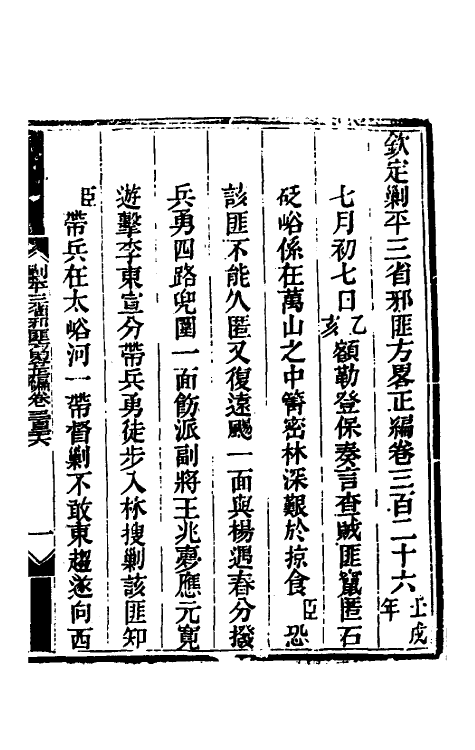 欽定剿平三省邪匪方畧正編卷三百二十六壬戌年
七月初七日乙亥額勒登保奏言查賊匪竄匿石
砭峪係在萬山之中箐密林深艱於掠食臣恐
該匪不能久匿又復遠颺一面與楊遇春分撥
兵勇四路兜圍一面飭派副將王兆夢應元寬
遊擊李東宣分帶兵勇徒步入林搜剿該匪知
臣帶兵在太峪河一帶督剿不敢東趨遂向西
剿平三省邪匪方畧正編卷三百二十六
一